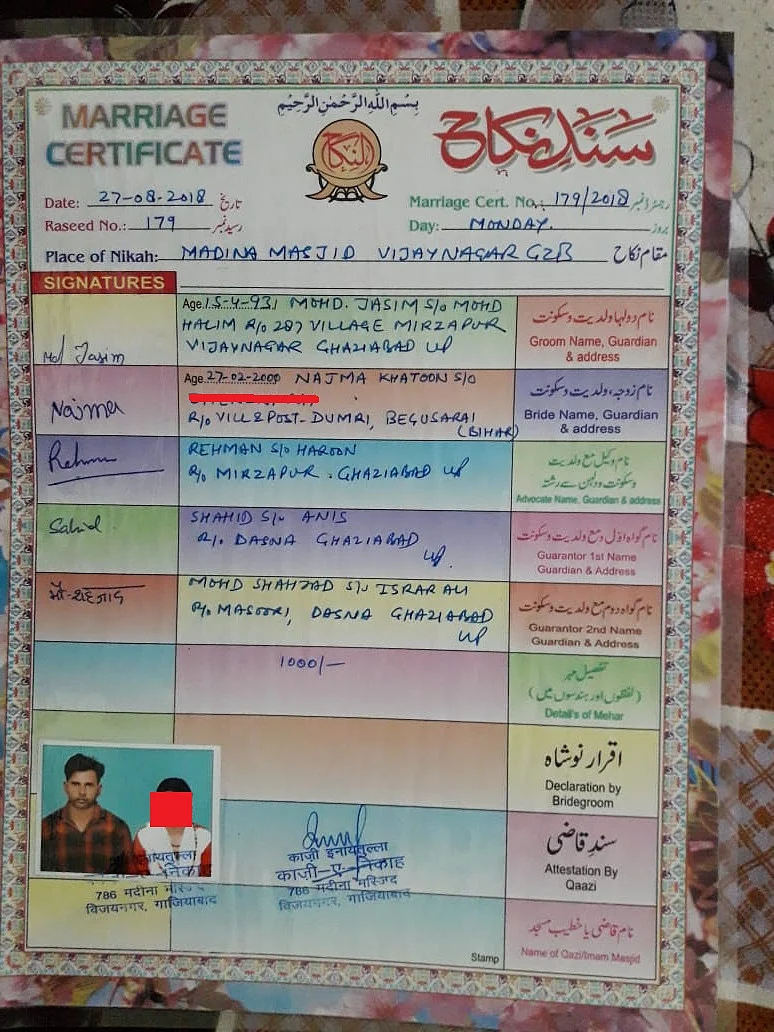 بِسْمِ اللهِ الرَّحْمٰنِ الرَّحِيْمِ
MARRIAGE
CERTIFICATE
النکاح
سَندِنکاح
Date: 27-08-2018 تاریخ
Marriage Cert. No. 179/2018 رجسٹر نمبر
Raseed No.: 179 رسید نمبر
Day: MONDAY. بروز
Place of Nikah: MADINA MASJID VIJAYNAGAR GZB مقام نکاح
SIGNATURES
Md Jasim
Age 15-4-93 MOHD. JASIM S/O MOHD
HALIM R/O 287 VILLAGE MIRZAPUR
VIJAYNAGAR GHAZIABAD UP
نام دولہا ولدیت وسکونت
Groom Name, Guardian
& address
Najma
Age 27-02-2000 NAJMA KHATOON S/O
R/O VILL & POST- DUMRI, BEGUSARAI
(BIHAR)
نام زوجہ، ولدیت وسکونت
Bride Name, Guardian
& address
Rehman
REHMAN S/O HAROON
R/O MIRZAPUR. GHAZIABAD UP
نام وکیل مع ولدیت
وسکونت ودولہن سے رشتہ
Advocate Name, Guardian & address
Sahid
SHAHID S/O ANIS
R/O DASNA GHAZIABAD
UP.
نام گواہ اوّل ومع ولدیت وسکونت
Guarantor 1st Name
Guardian & Address
मौ-शहजाद
MOHD SHAHZAD S/O ISRAR ALI
R/O MASOORI, DASNA GHAZIABAD
UP
نام گواہ دوم مع ولدیت وسکونت
Guarantor 2nd Name
Guardian & Address
1000/-
تفصیل مہر
(لفظوں اور ہندسوں میں)
Detail's of Mehar
اقرار نوشاہ
Declaration by
Bridegroom
سندِ قاضی
Attestation By
Qaazi
इनायतुल्ला
निकाह
786 मदीना मस्जिद
विजयनगर, गाजियाबाद
काज़ी इनायतुल्ला
काज़ी-ए-निकाह
786 मदीना मस्जिद
विजयनगर, गाजियाबाद
Stamp
نام قاضی یا خطیب مسجد
Name of Qazi/Imam Masjid